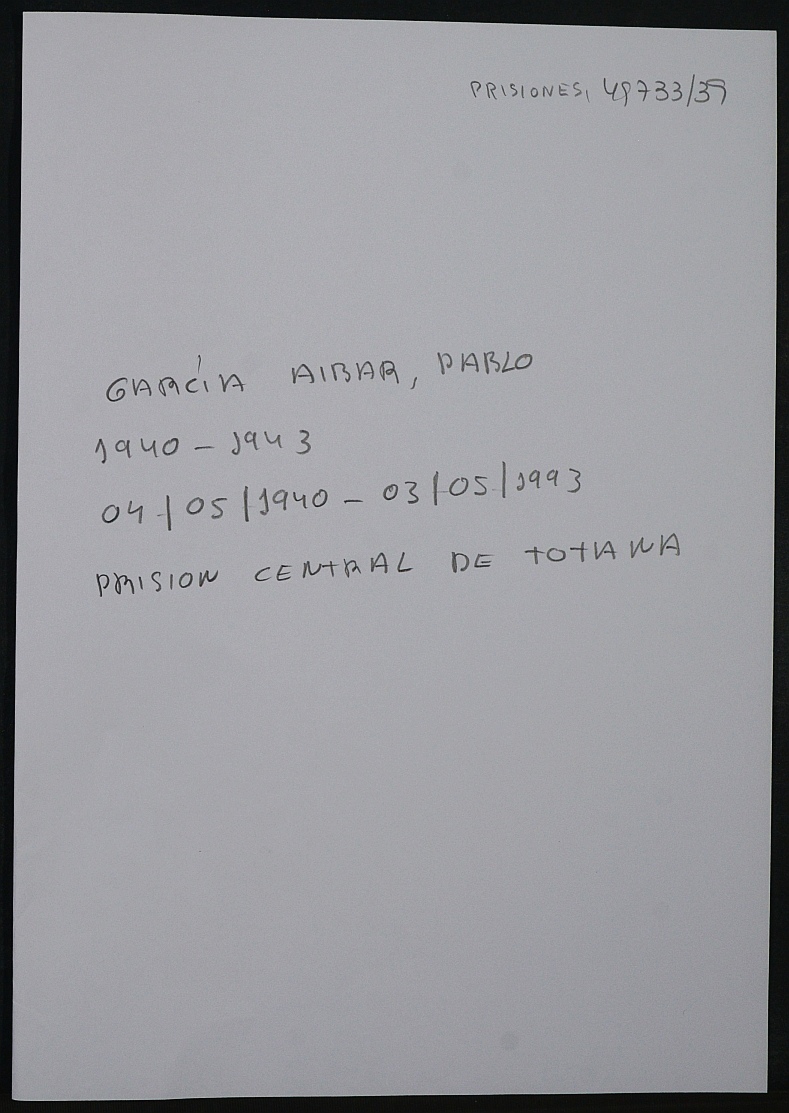 PRISIONES, 49733/39
GARCÍA AIBAR, PABLO
1940 - 1943
04/05/1940 - 03/05/1993
PRISION CENTRAL DE TOTANA